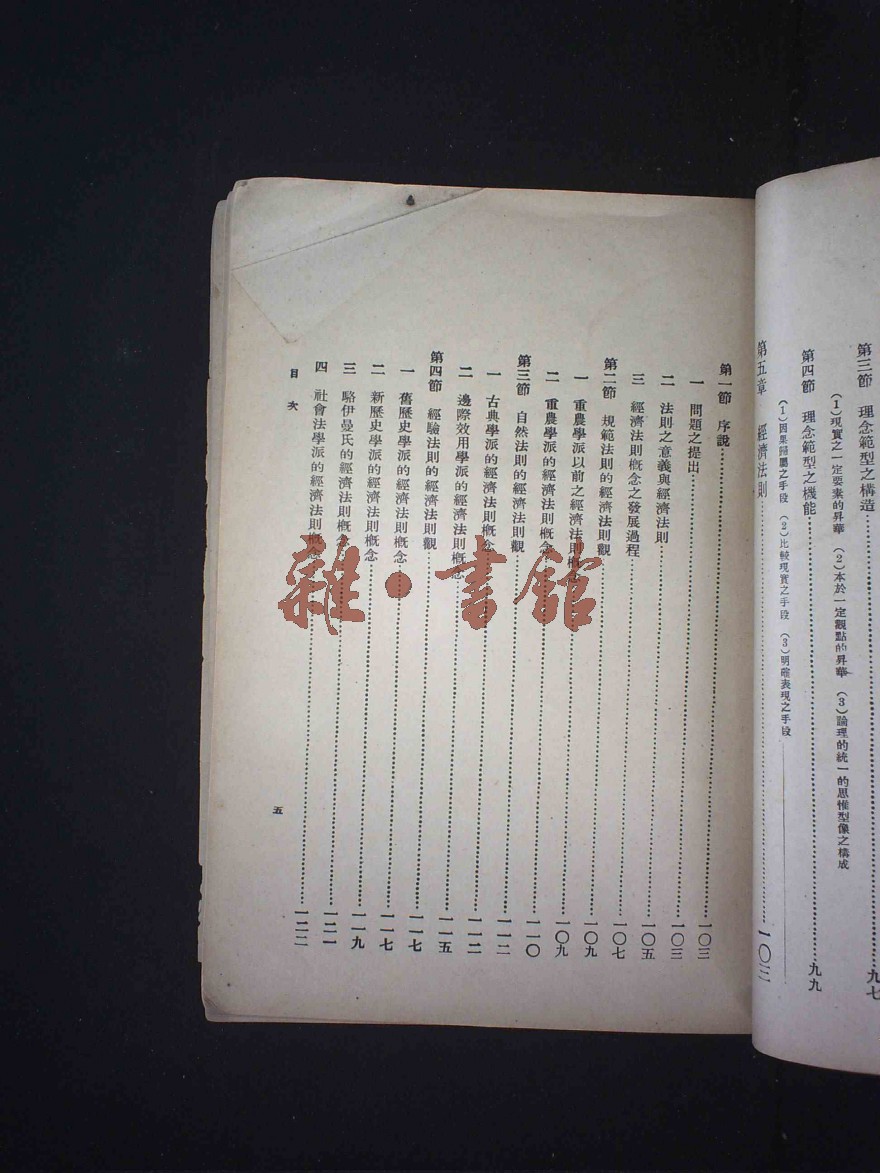 第三節 理念範型之構造……九七
(1)現實之一定要素的昇華 (2)本於一定觀點的昇華 (3)論理的統一的思惟型像之構成
第四節 理念範型之機能……九九
(1)因果歸屬之手段 (2)比較現實之手段 (3)明確表現之手段
第五章 經濟法則……一〇三
第一節 序說……一〇三
一 問題之提出……一〇三
二 法則之意義與經濟法則……一〇五
三 經濟法則概念之發展過程……一〇七
第二節 規範法則的經濟法則觀……一〇九
一 重農學派以前之經濟法則概念……一〇九
二 重農學派的經濟法則概念……一一〇
第三節 自然法則的經濟法則觀……一一二
一 古典學派的經濟法則概念……一一二
二 邊際效用學派的經濟法則概念……一一五
第四節 經驗法則的經濟法則觀……一一七
一 舊歷史學派的經濟法則概念……一一七
二 新歷史學派的經濟法則概念……一一九
三 駱伊曼氏的經濟法則概念……一二一
四 社會法學派的經濟法則概念……一二二
目次
五
雜·書館